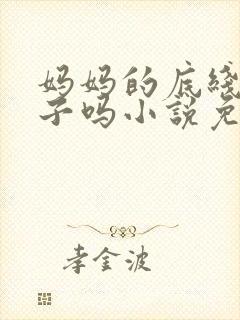 妈妈的底线
子吗小说免
李金波